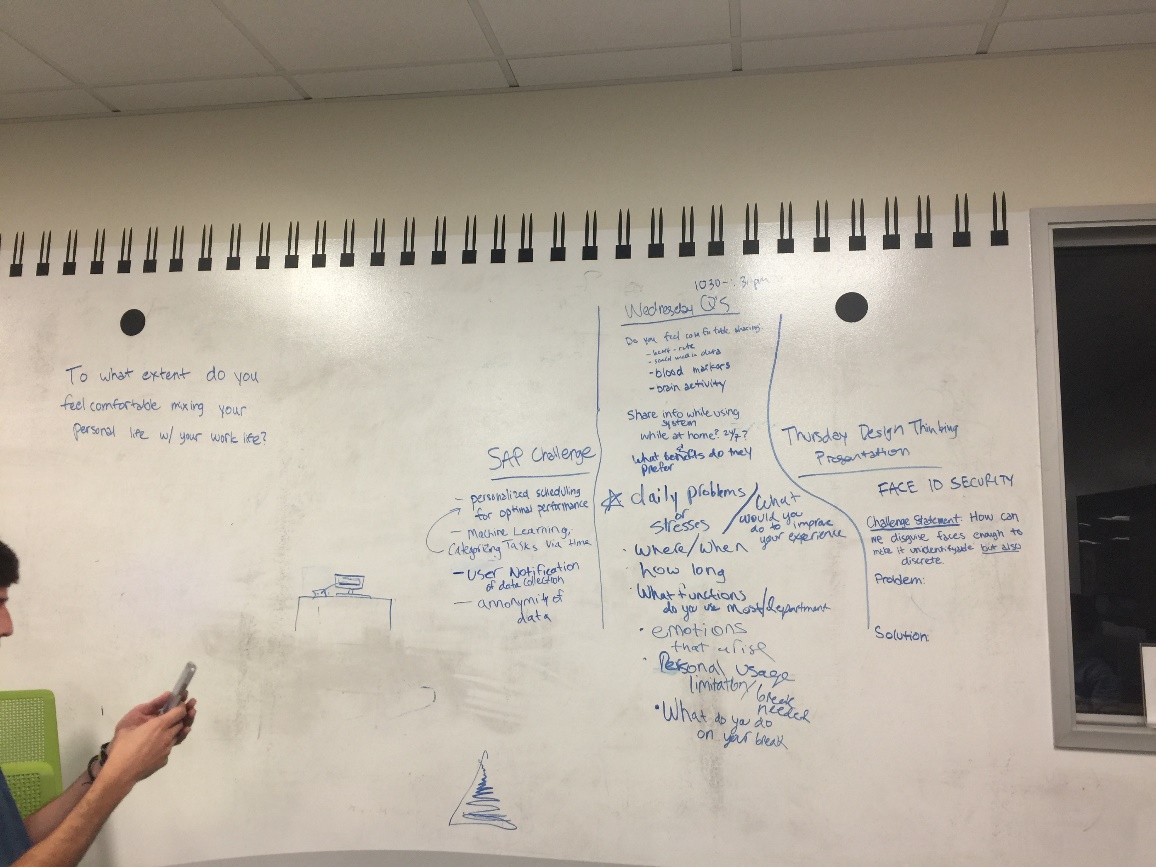 To what extent do you
feel comfortable mixing your
personal life w/ your work life?
SAP Challenge
- personalized scheduling
for optimal performance
- Machine Learning,
Categorizing Tasks via time
- User Notification
of data collection
- annonymity of
data
1030-
Wednesday Q's
Do you feel comfortable sharing
- heart-rate
- social media data
- blood markers
- brain activity
Share info while using
system
while at home? 24/7?
What benefits do they
prefer
☆ daily problems/
or
stresses
What
would you
do to improve
your experience
· Where/When
how long
· What functions/
do you use most/department
· emotions
that arise
· Personal usage
limitation/
break
needed
· What do you do
on your break
Thursday Design Thinking
Presentation
FACE ID SECURITY
Challenge Statement: How can
we disguise faces enough to
make it unidentifyable but also
discrete.
Problem:
Solution: